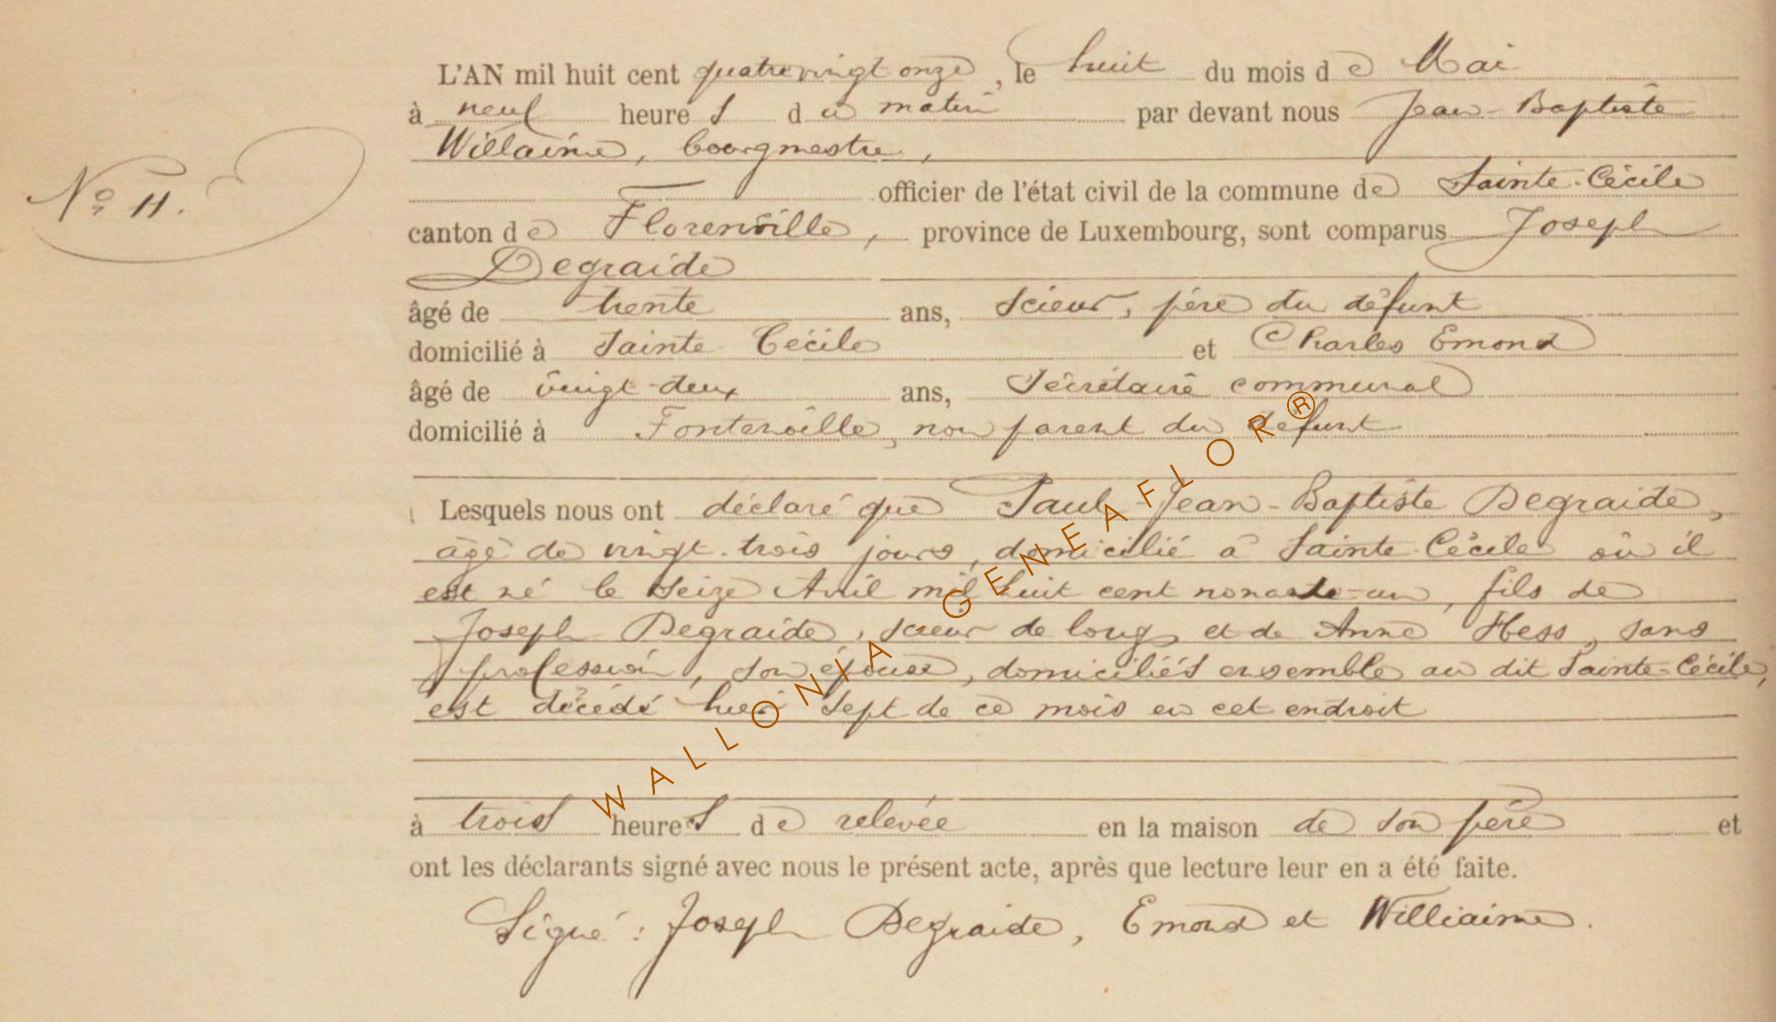 L'AN mil huit cent quatrevingt onze, le huit du mois de Mai
à neuf heures du matin par devant nous Jean-Baptiste
Willaime, bourgmestre,
officier de l'état civil de la commune de Sainte-Cécile
N° 11.
canton de Florenville, province de Luxembourg, sont comparus Joseph
Degraide
âgé de trente ans, Scieur, père du défunt
domicilié à Sainte Cécile et Charles Emond
âgé de vingt-deux ans, Secrétaire communal
domicilié à Fontenoille, non parent du défunt
Lesquels nous ont déclaré que Paul Jean-Baptiste Degraide,
âgé de vingt-trois jours, domicilié à Sainte-Cécile où il
est né le seize Avril mil huit cent nonante-un, fils de
Joseph Degraide, scieur de long, et de Anne Hess, sans
profession, son épouse, domiciliés ensemble au dit Sainte-Cécile,
est décédé hier sept de ce mois en cet endroit
à trois heures de relevée en la maison de son père et
ont les déclarants signé avec nous le présent acte, après que lecture leur en a été faite.
Signé : Joseph Degraide, Emond et Williaime.
WALLONIA GENEAFLOR®